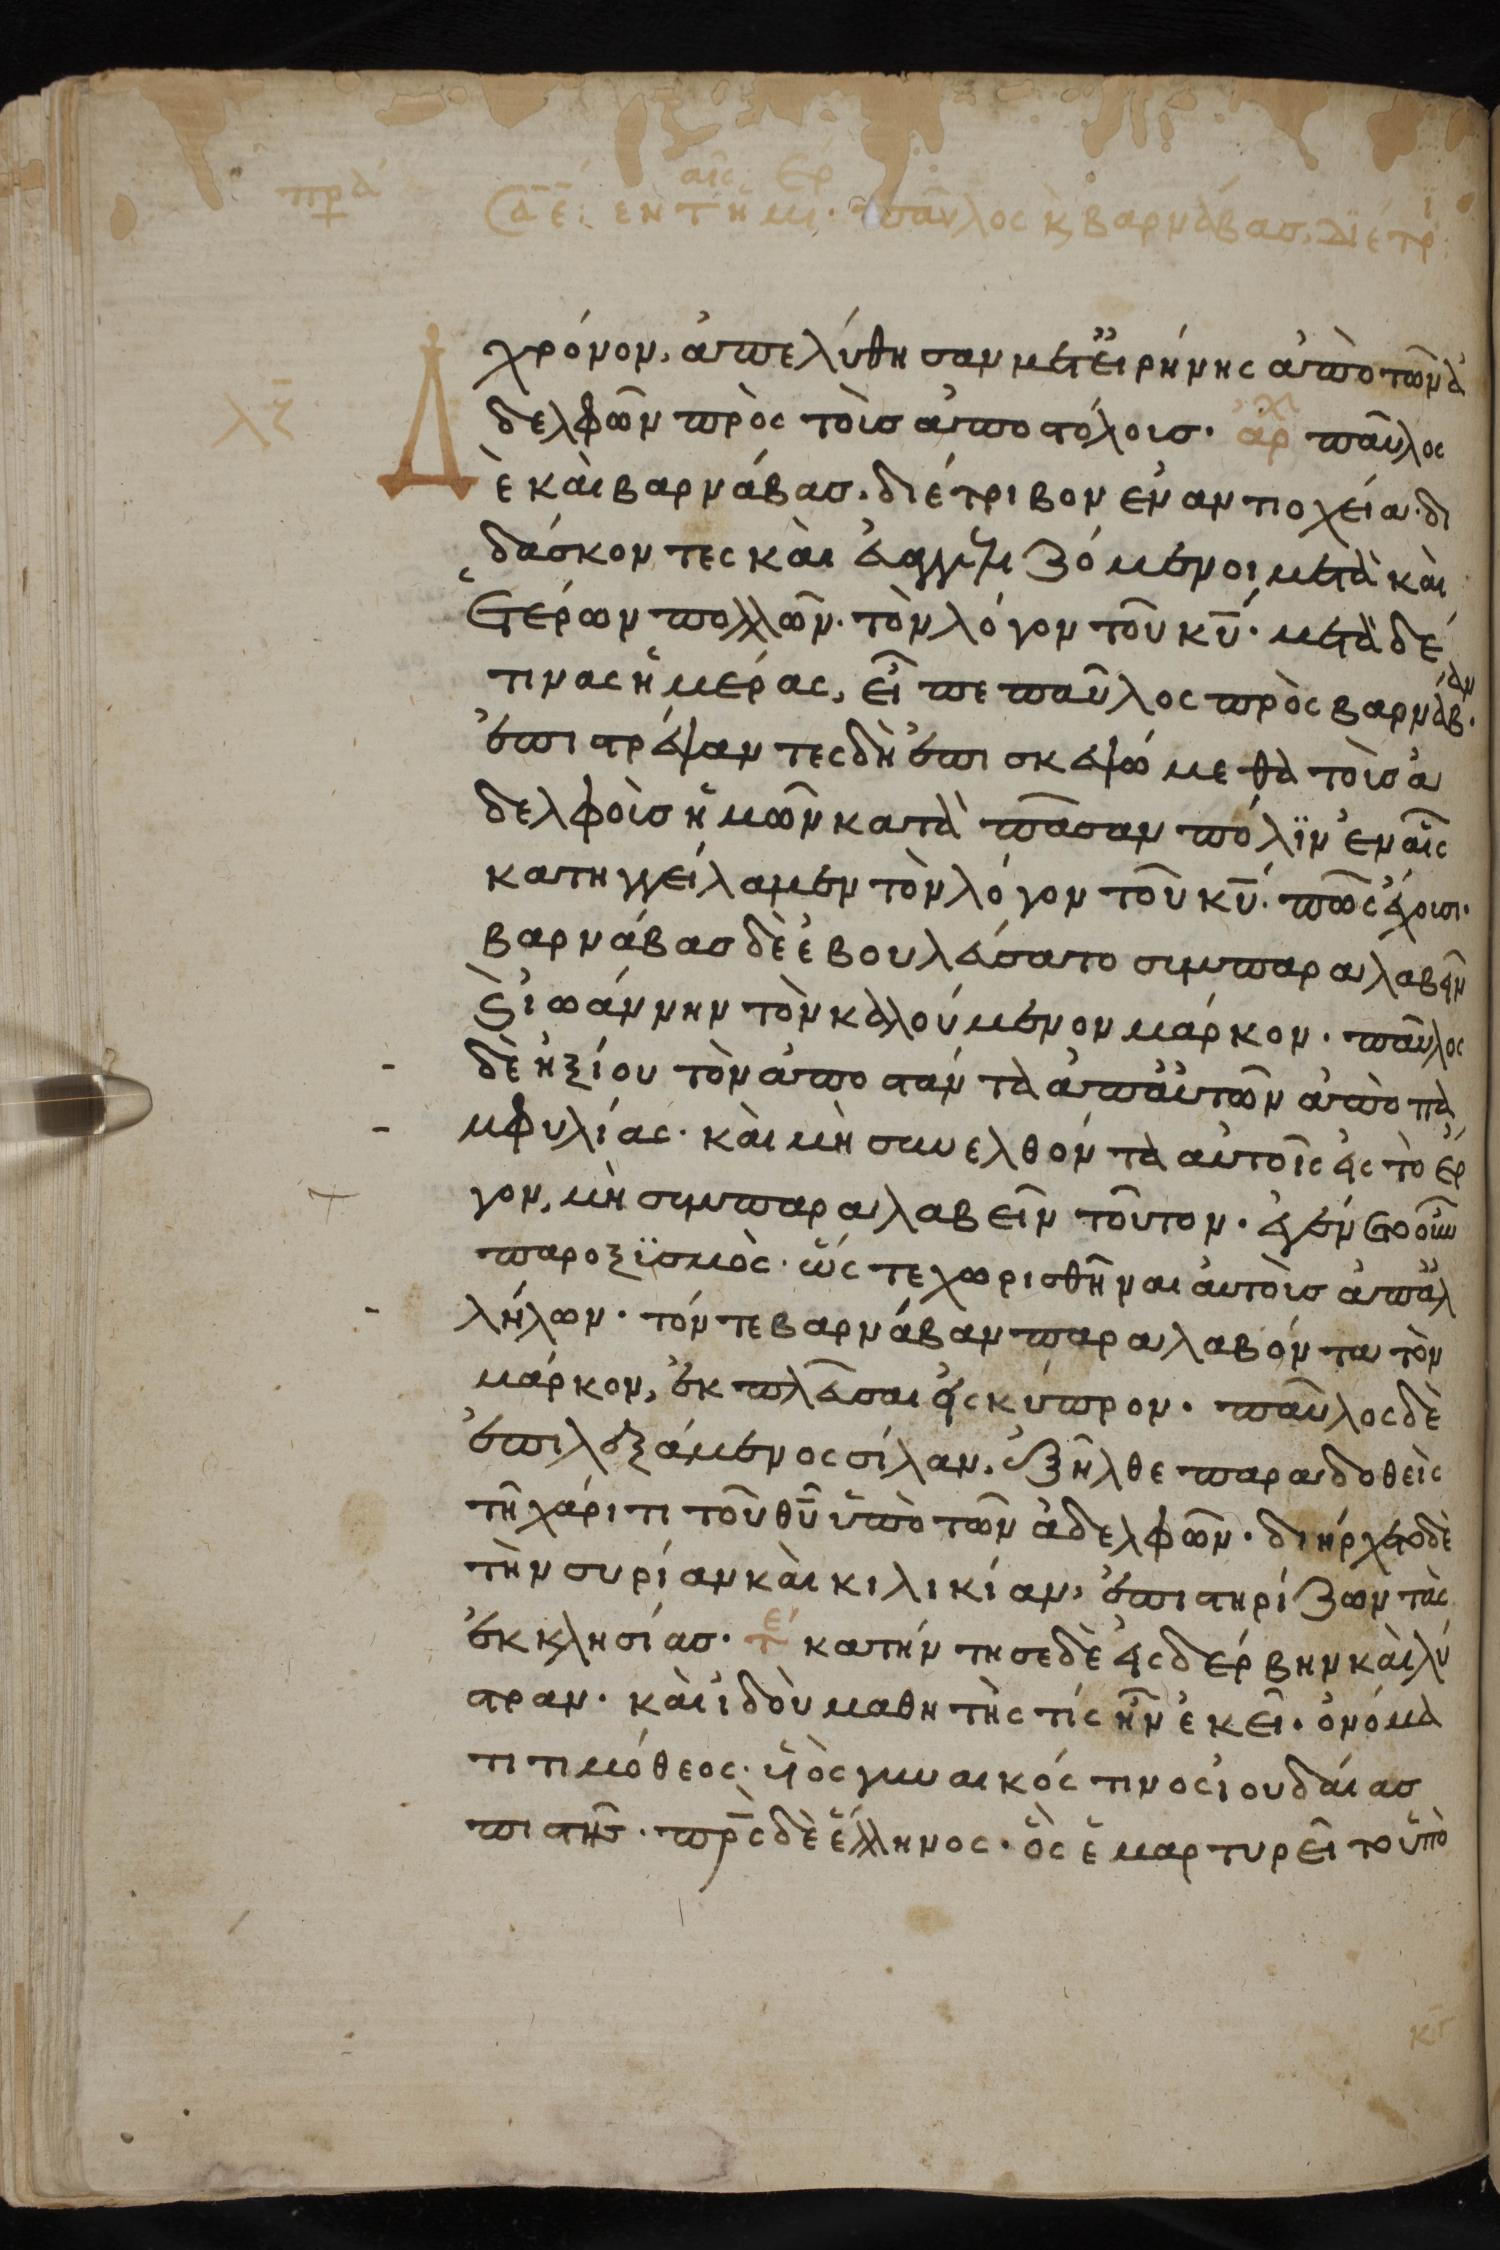 πρά
αις ερ
εν τη ημ. παῦλος κ βαρνάβας. διέτρ
χρόνον, ἀπελύθησαν μετ εἰρήνης ἀπὸ τῶν ἀ
λζ δελφῶν πρὸς τοὺς ἀποστόλους. ἀρχ παῦλος
Δὲ καὶ βαρνάβας. διέτριβον ἐν αντιοχεία. δι
δάσκοντες καὶ εὐαγγελιζόμενοι μετὰ καὶ
ἑτέρων πολλῶν. τὸν λόγον τοῦ κυ. μετὰ δέ
τινας ἡμέρας, εἶπε παῦλος πρὸς βαρνάβαν.
ἐπιστρέψαντες δὴ ἐπισκεψώμεθα τοὺς ἀ
δελφοὺς ἡμῶν κατὰ πᾶσαν πόλϊν ἐν αἷς
κατηγγείλαμεν τὸν λόγον τοῦ κυ. πῶς ἔχουσι.
βαρνάβας δὲ ἐβουλεύσατο συμπαραλαβεῖν
τὸν ἰωάννην τὸν καλούμενον μάρκον. παῦλος
δὲ ἠξίου τὸν ἀποστάντα ἀπ αὐτῶν ἀπὸ πα
μφυλίας. καὶ μὴ συνελθόντα αὐτοῖς εἰς τὸ ἔρ
γον, μὴ συμπαραλαβεῖν τοῦτον. ἐγένετο οὖν
παροξϊσμὸς. ὥς τε χωρισθῆναι αὐτοὺς ἀπ ἀλ
λήλων. τόν τε βαρνάβαν παραλαβόντα τὸν
μάρκον, ἐκπλεῦσαι εἰς κύπρον. παῦλος δὲ
ἐπιλεξάμενος σίλαν. ἐξῆλθε παραδοθεὶς
τῆ χάριτι τοῦ θυ ὑπὸ τῶν ἀδελφῶν. διήρχετο δὲ
τὴν συρίαν καὶ κιλικίαν, ἐπιστηρίζων τὰς
ἐκκλησίας. τε κατήντησε δὲ εἰς δέρβην καὶ λύ
στραν. καὶ ἰδοὺ μαθητὴς τίς ἦν ἐκεῖ. ὀνόμα
τι τιμόθεος. υἱὸς γυναικός τινος ἰουδαίας
πιστῆς. πρς δὲ ἕλληνος. ὃς ἐμαρτυρεῖτο ὑπὸ